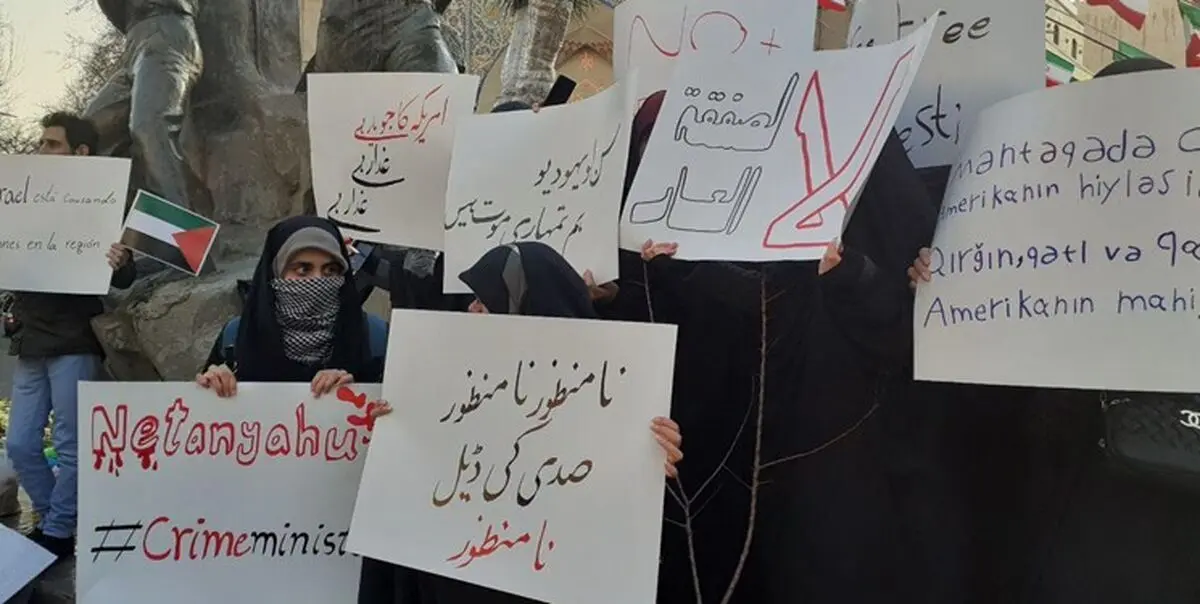 rael está causando
nes en la región
امریکہ کا جو یار ہے
غدار ہے
غدار ہے
سن لو یہودیو
ہم تمہاری موت ہیں
NO +
لا
لصفقة
العار
Free
esti
məntəqədə
Amerikanın hiyləsi
Qırğın, qətl və qə
Amerikanın mahi
Netanyahu
#Crimeminist
نا منظور نا منظور
صدی کی ڈیل
نا منظور